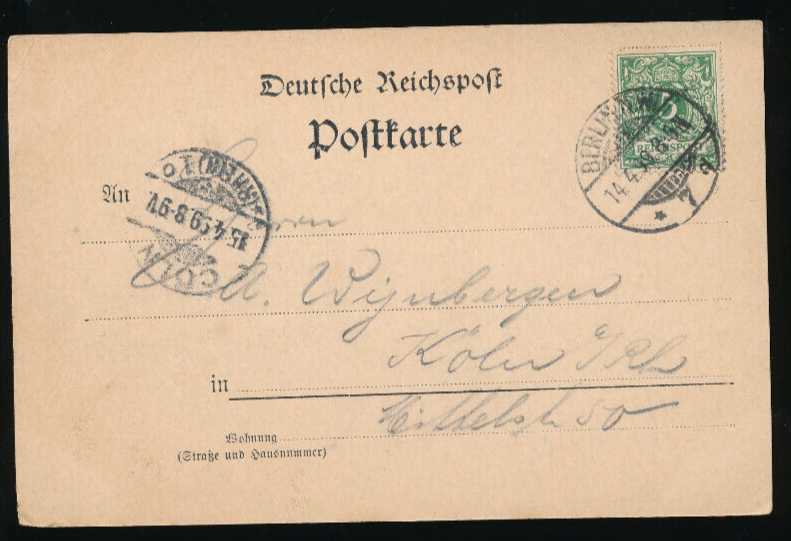 Deutsche Reichspost
Postkarte
5
REICHSPOST
BERLIN
14.4.99
7
An
Herrn
15.4.99.8-9V.
CÖLN
A. Wijnbergen
Köln a/Rh
in
Mittelstr 50
Wohnung
(Straße und Hausnummer)